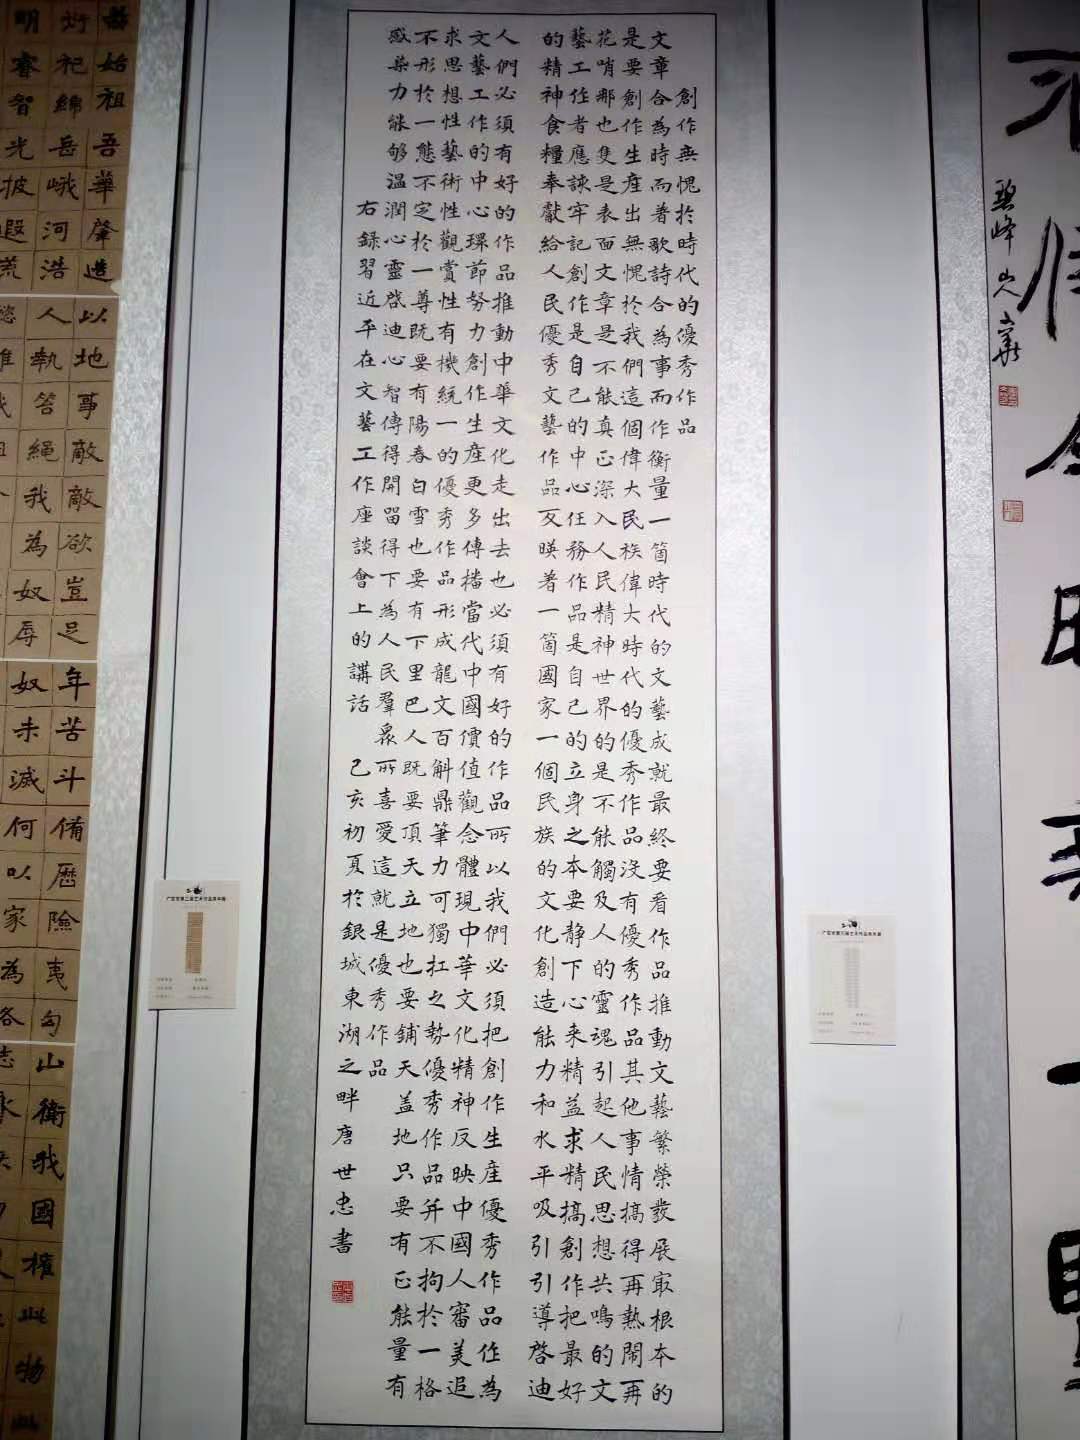 創作無愧於時代的優秀作品
文章合為時而著歌詩合為事而作衡量一箇時代的文藝成就最終要看作品推動文藝繁榮發展冣根本的
是要創作生產出無愧於我們這個偉大民族偉大時代的優秀作品沒有優秀作品其他事情搞得再熱鬧再
花哨那也隻是表面文章是不能真正深入人民精神世界的是不能觸及人的靈魂引起人民思想共鳴的文
藝工作者應諫牢記創作是自己的中心任務作品是自己的立身之本要靜下心來精益求精搞創作把最好
的精神食糧奉獻給人民優秀文藝作品反暎著一箇國家一個民族的文化創造能力和水平吸引引導啓迪
人們必須有好的作品推動中華文化走出去也必須有好的作品所以我們必須把創作生產優秀作品作為
文藝工作的中心環節努力創作生產更多傳播當代中國價值觀念體現中華文化精神反映中國人審美追
求思想性藝術性觀賞性有機統一的優秀作品形成龍文百斛鼎筆力可獨扛之勢優秀作品并不拘於一格
不形於一態不定於一尊既要有陽春白雪也要有下里巴人既要頂天立地也要鋪天蓋地只要有正能量有
感染力能够溫潤心靈啟迪心智傳得開留得下為人民羣眾所喜愛這就是優秀作品
右錄習近平在文藝工作座談會上的講話 己亥初夏於銀城東湖之畔唐世忠書
始祖吾華肇造以地事敵敵欲豈足年苦斗備歷險夷匈山衛我國權此物此
衍祀綿岳峨河浩人執笞繩我為奴辱奴未滅何以家為各志
明睿智光披遐荒